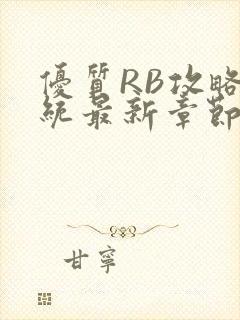 優質RB攻略
統最新章節
甘寧